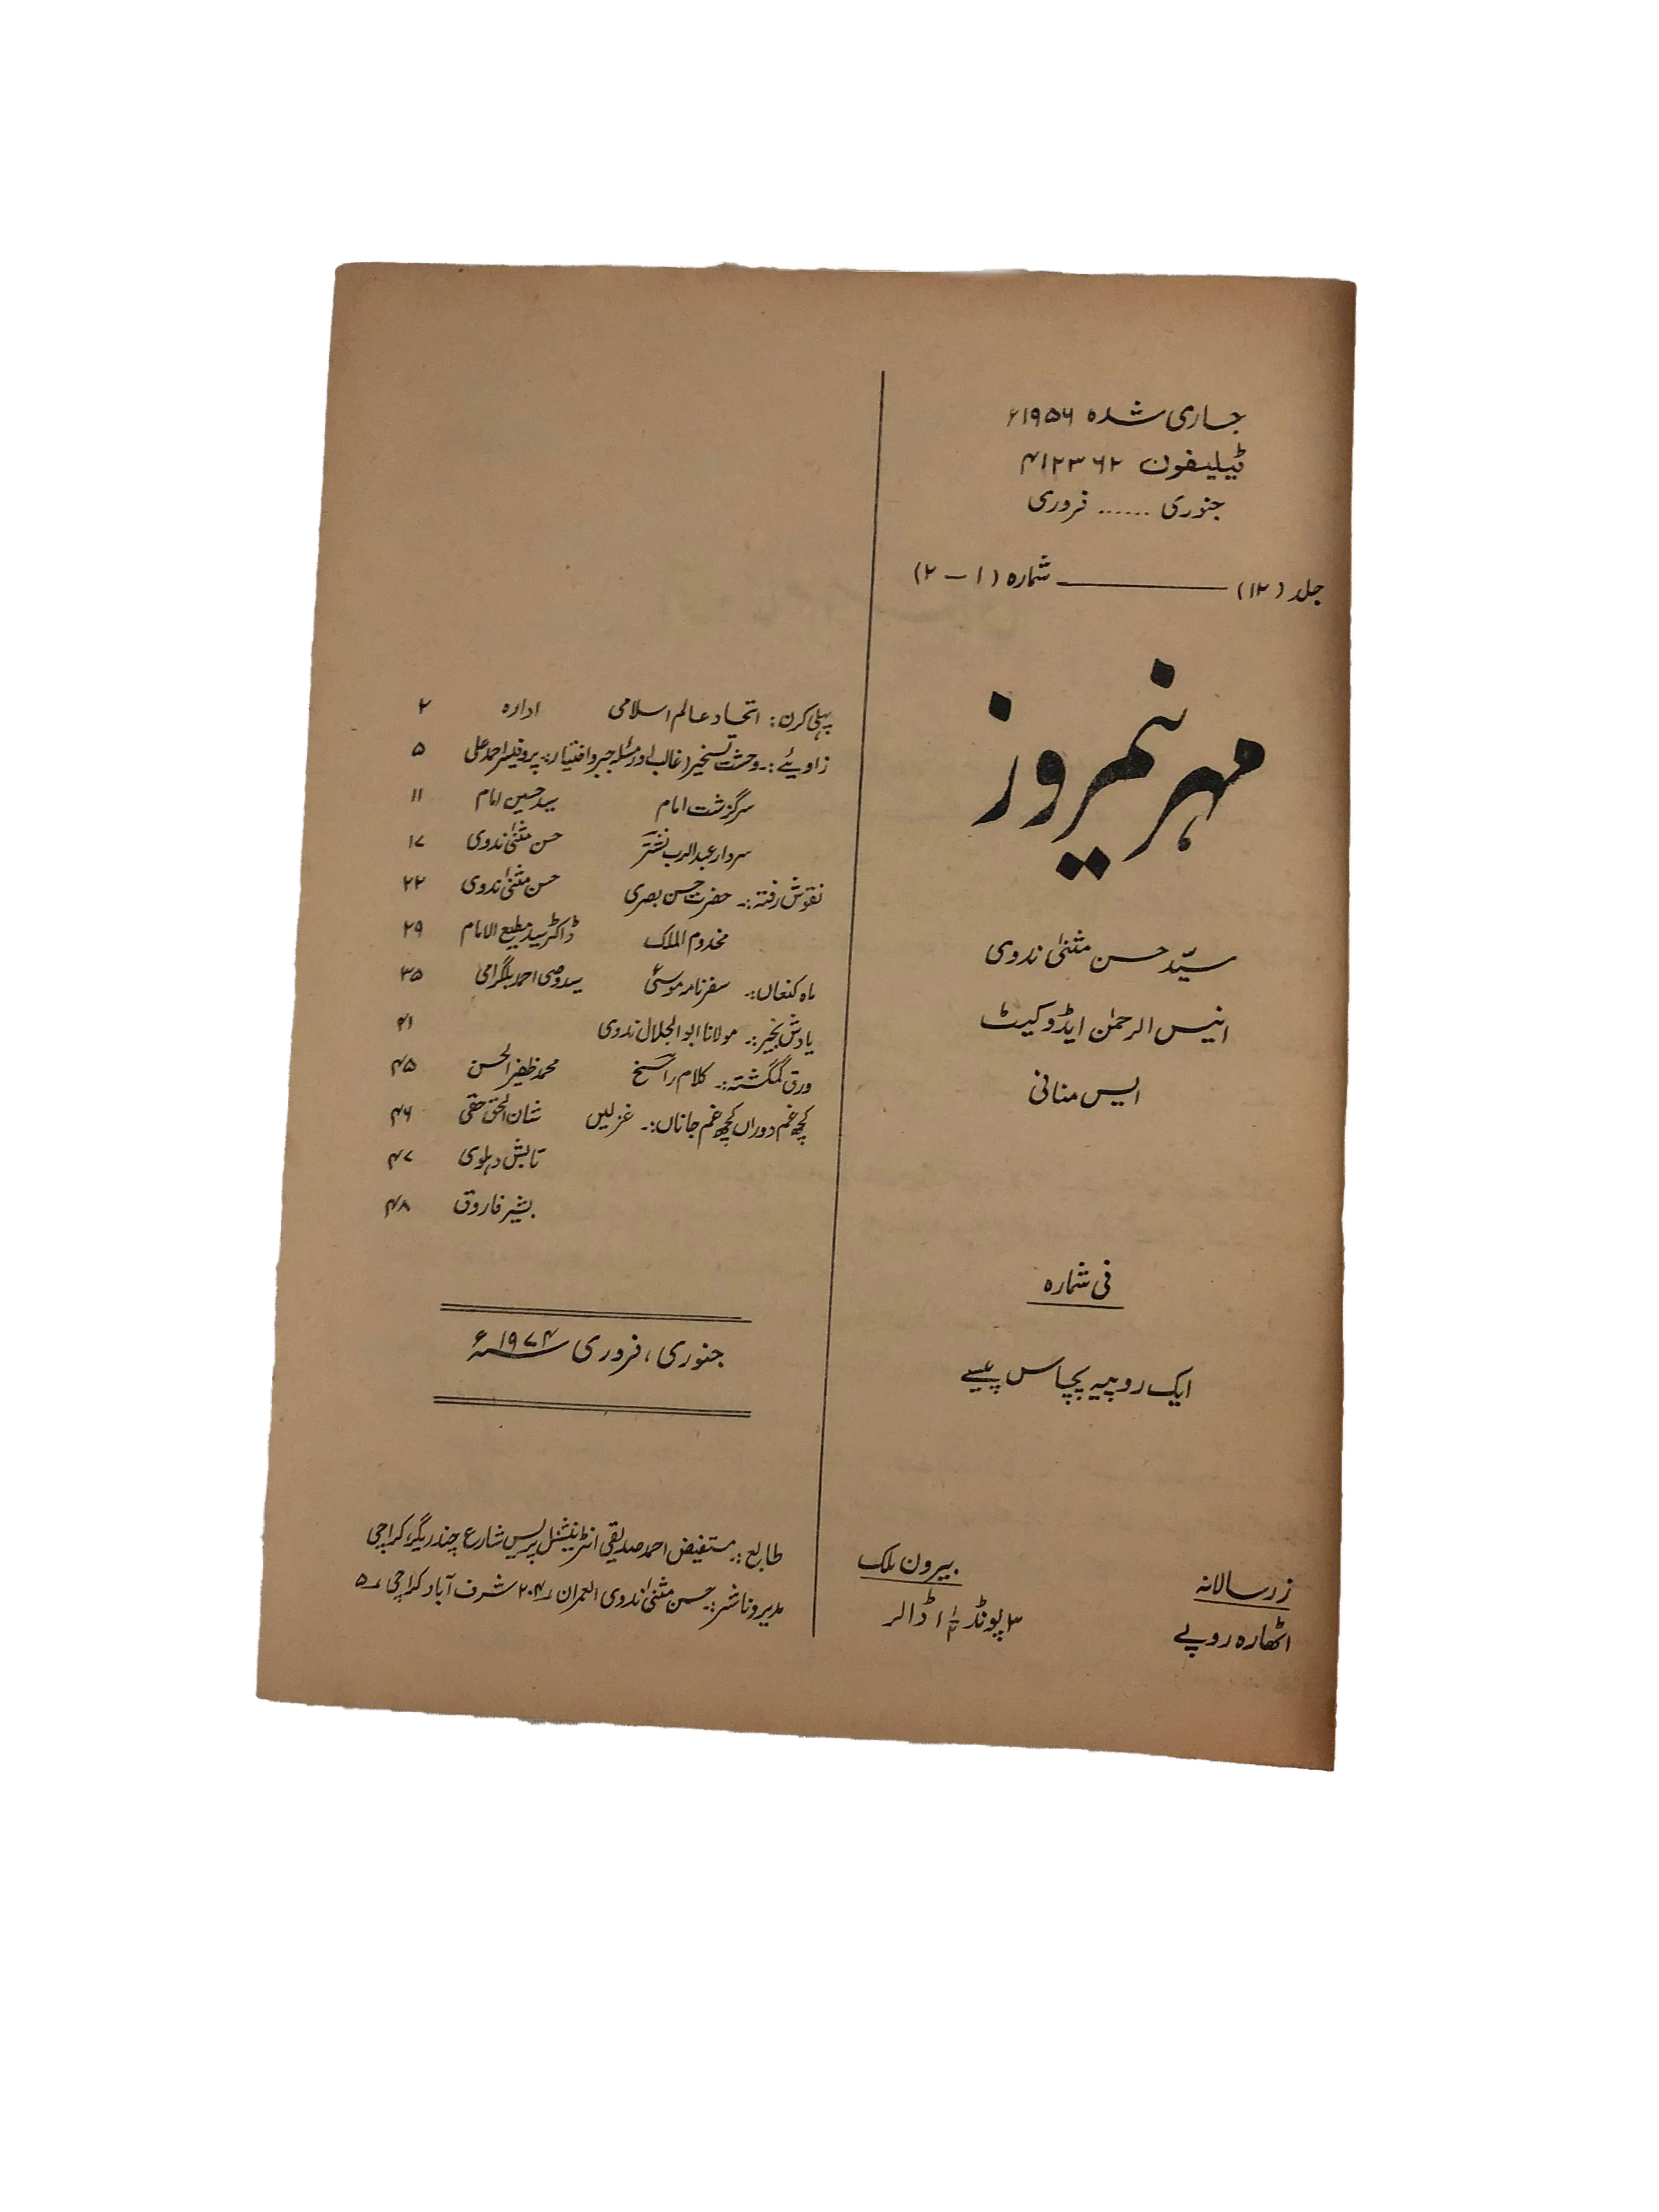 جاری شدہ ۱۹۵۶ء
ٹیلیفون ۴۱۲۳۶۲
جنوری ...... فروری
جلد (۱۲) ــــــ شمارہ (۱ – ۲)
مہر نیمروز
سیّد حسن مثنیٰ ندوی
انیس الرحمٰن ایڈوکیٹ
ایس منانی
فی شمارہ
ایک روپیہ پچاس پیسے
زر سالانہ
اٹھارہ روپے
بیرون ملک
۳ پونڈ ڈالر
پہلی کرن: اتحاد عالم اسلامی ادارہ ۲
زاویئے:۔ وحشت تسخیر (غالب اور مسئلہ جبر و اختیار):۔ پروفیسر احمد علی ۵
سرگزشت امام سید حسین امام ۱۱
سردار عبدالرب نشتر حسن مثنیٰ ندوی ۱۷
نقوش رفتہ:۔ حضرت حسن بصری حسن مثنیٰ ندوی ۲۲
مخدوم الملک ڈاکٹر سید مطیع الامام ۲۹
ماہ کنعاں:۔ سفرنامہ موسیٰؑ سید وصی احمد بلگرامی ۳۵
یادش بخیر:۔ مولانا ابوالجلال ندوی ۴۱
ورق گمگشتہ:۔ کلام راسخ محمد ظفیر الحسن ۴۵
کچھ غم دوراں کچھ غم جاناں:۔ غزلیں شان الحق حقی ۴۶
تابش دہلوی ۴۷
بشیر فاروق ۴۸
جنوری، فروری ۱۹۷۴ء
طابع:۔ مستفیض احمد صدیقی انٹرنیشنل پریس شارع چندریگر، کراچی
مدیر و ناشر:۔ حسن مثنیٰ ندوی العمران ۲۰۴ شرف آباد کراچی ۵